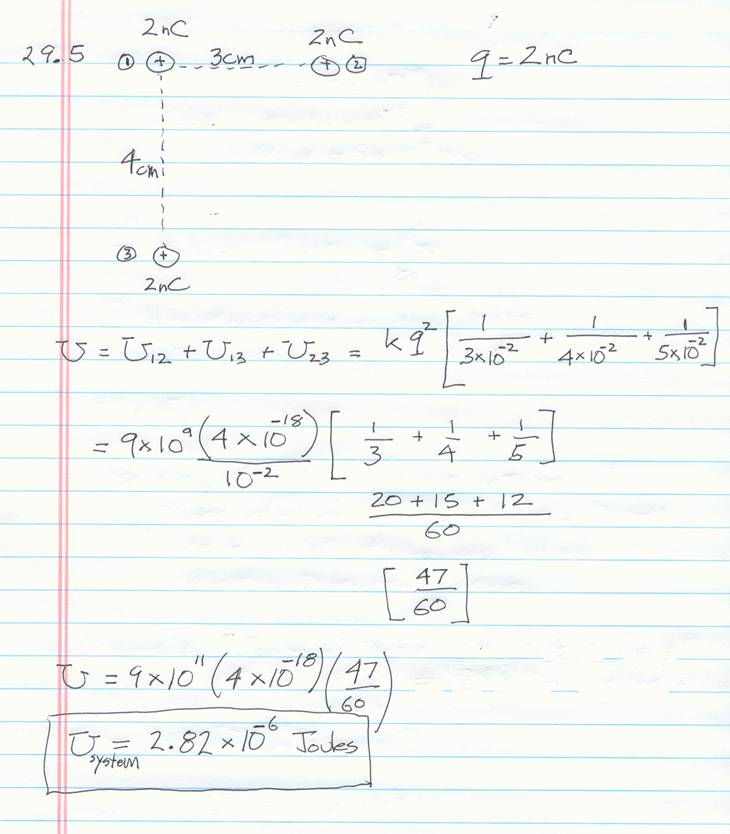 2nC
29.5 ① + 3cm 2nC + ② q = 2nC
4cm
③ +
2nC
U = U₁₂ + U₁₃ + U₂₃ = kq² [ 1/3×10⁻² + 1/4×10⁻² + 1/5×10⁻² ]
= 9×10⁹ (4×10⁻¹⁸)/10⁻² [ 1/3 + 1/4 + 1/5 ]
20 + 15 + 12
60
[ 47/60 ]
U = 9×10¹¹ (4×10⁻¹⁸) (47/60)
U system = 2.82×10⁻⁶ Joules